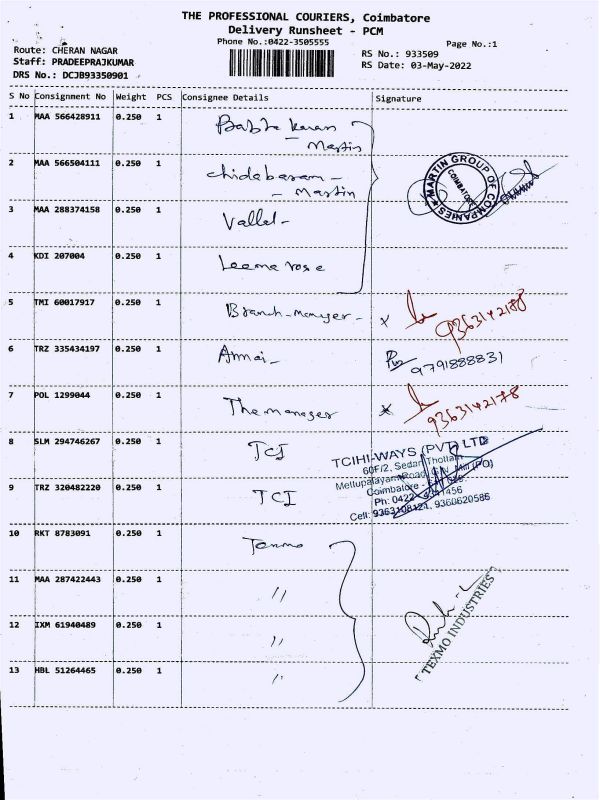 THE PROFESSIONAL COURIERS, Coimbatore
Delivery Runsheet - PCM
Phone No.:0422-3505555
Page No.:1
Route: CHERAN NAGAR
Staff: PRADEEPRAJKUMAR
DRS No.: DCJB93350901
RS No.: 933509
RS Date: 03-May-2022
S No Consignment No Weight PCS Consignee Details Signature
1 MAA 566428911 0.250 1
Martin
2 MAA 566504111 0.250 1 chidabaram -
- Martin
MARTIN GROUP OF COMPANIES
COIMBATORE
3 MAA 288374158 0.250 1 Vallal-
4 KDI 207004 0.250 1 Leema rose
5 TMI 60017917 0.250 1 Branch-manager- x 9363142178
6 TRZ 335434197 0.250 1 Annai- 9791888831
7 POL 1299044 0.250 1 The manager 9363142178
8 SLM 294746267 0.250 1 TCI
TCIHI-WAYS (PVT) LTD
60F/2, Sedan Thottam
Mettupalayam Road, G.N. Mill (PO)
Coimbatore -
9 TRZ 320482220 0.250 1 TCI
Ph: 0422 1456
Cell: 9363108121, 9360620586
10 RKT 8783091 0.250 1 Texmo
11 MAA 287422443 0.250 1 "
12 IXM 61940489 0.250 1 "
TEXMO INDUSTRIES
13 HBL 51264465 0.250 1 "